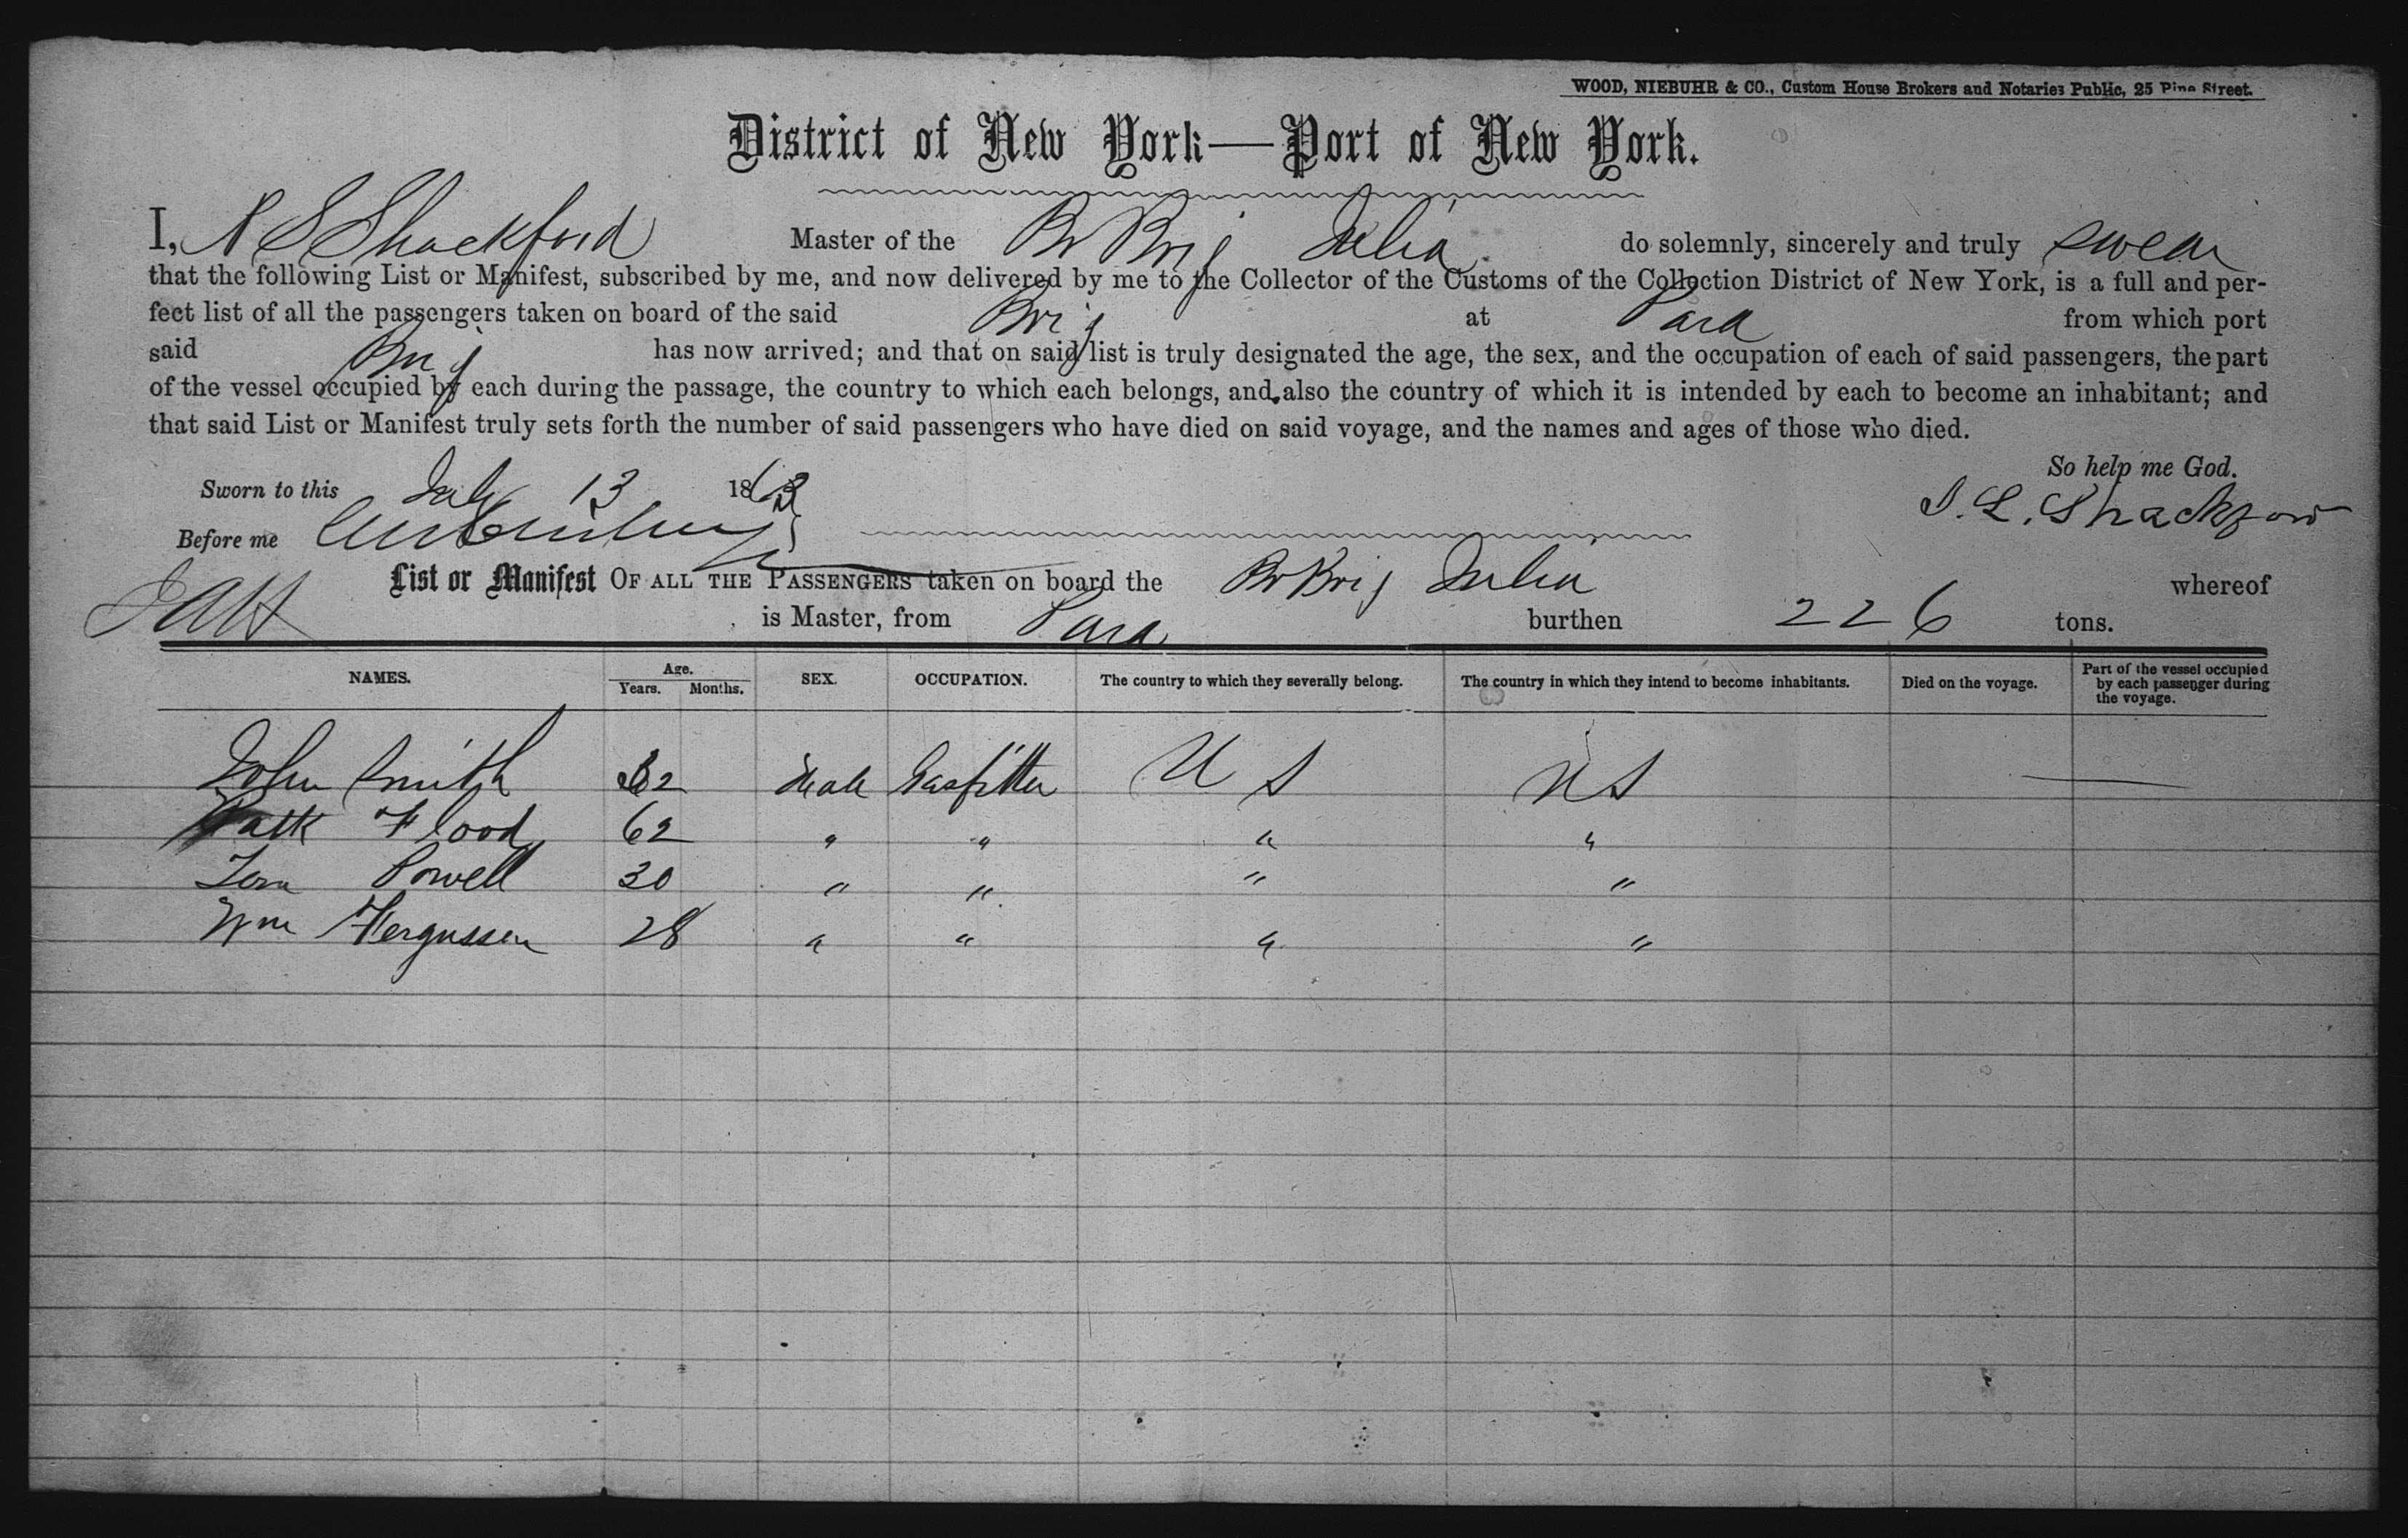 WOOD, NIEBUHR & CO., Custom House Brokers and Notaries Public, 25 Pine Street.
District of New York—Port of New York.
I, R S Shackford Master of the Br Brig Julia do solemnly, sincerely and truly swear
that the following List or Manifest, subscribed by me, and now delivered by me to the Collector of the Customs of the Collection District of New York, is a full and per-
fect list of all the passengers taken on board of the said Brig at Para from which port
said Brig has now arrived; and that on said list is truly designated the age, the sex, and the occupation of each of said passengers, the part
of the vessel occupied by each during the passage, the country to which each belongs, and also the country of which it is intended by each to become an inhabitant; and
that said List or Manifest truly sets forth the number of said passengers who have died on said voyage, and the names and ages of those who died.
So help me God.
Sworn to this July 13 1863
Before me
List or Manifest OF ALL THE PASSENGERS taken on board the Br Brig Julia whereof
is Master, from Para burthen 226 tons.
NAMES. Age. Years. Months. SEX. OCCUPATION. The country to which they severally belong. The country in which they intend to become inhabitants. Died on the voyage. Part of the vessel occupied by each passenger during the voyage.
John Smith Male Gasfitter U S U S —
Patk Flood 62 " " " "
Tom Powell 30 " " " "
Wm Fergussen 28 " " " "